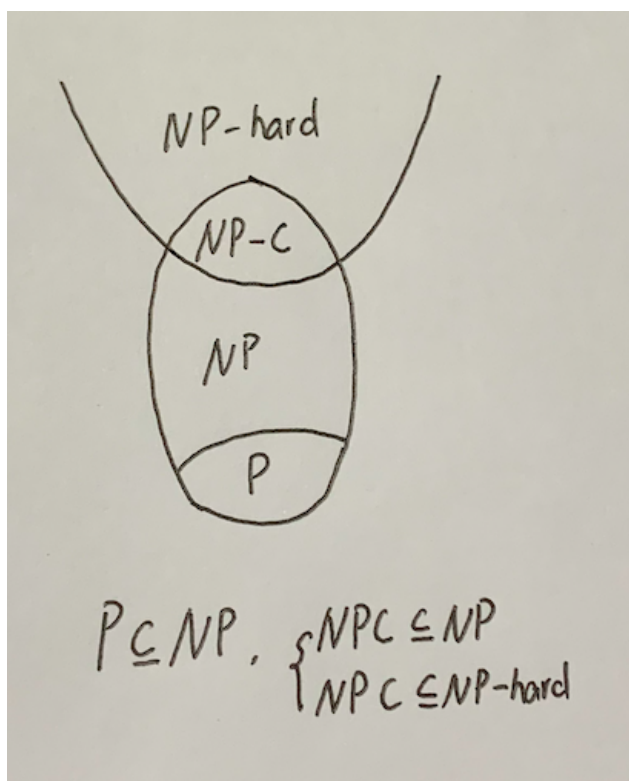 NP-hard
NP-C
NP
P
P⊆NP. {NPC⊆NP
NPC⊆NP-hard